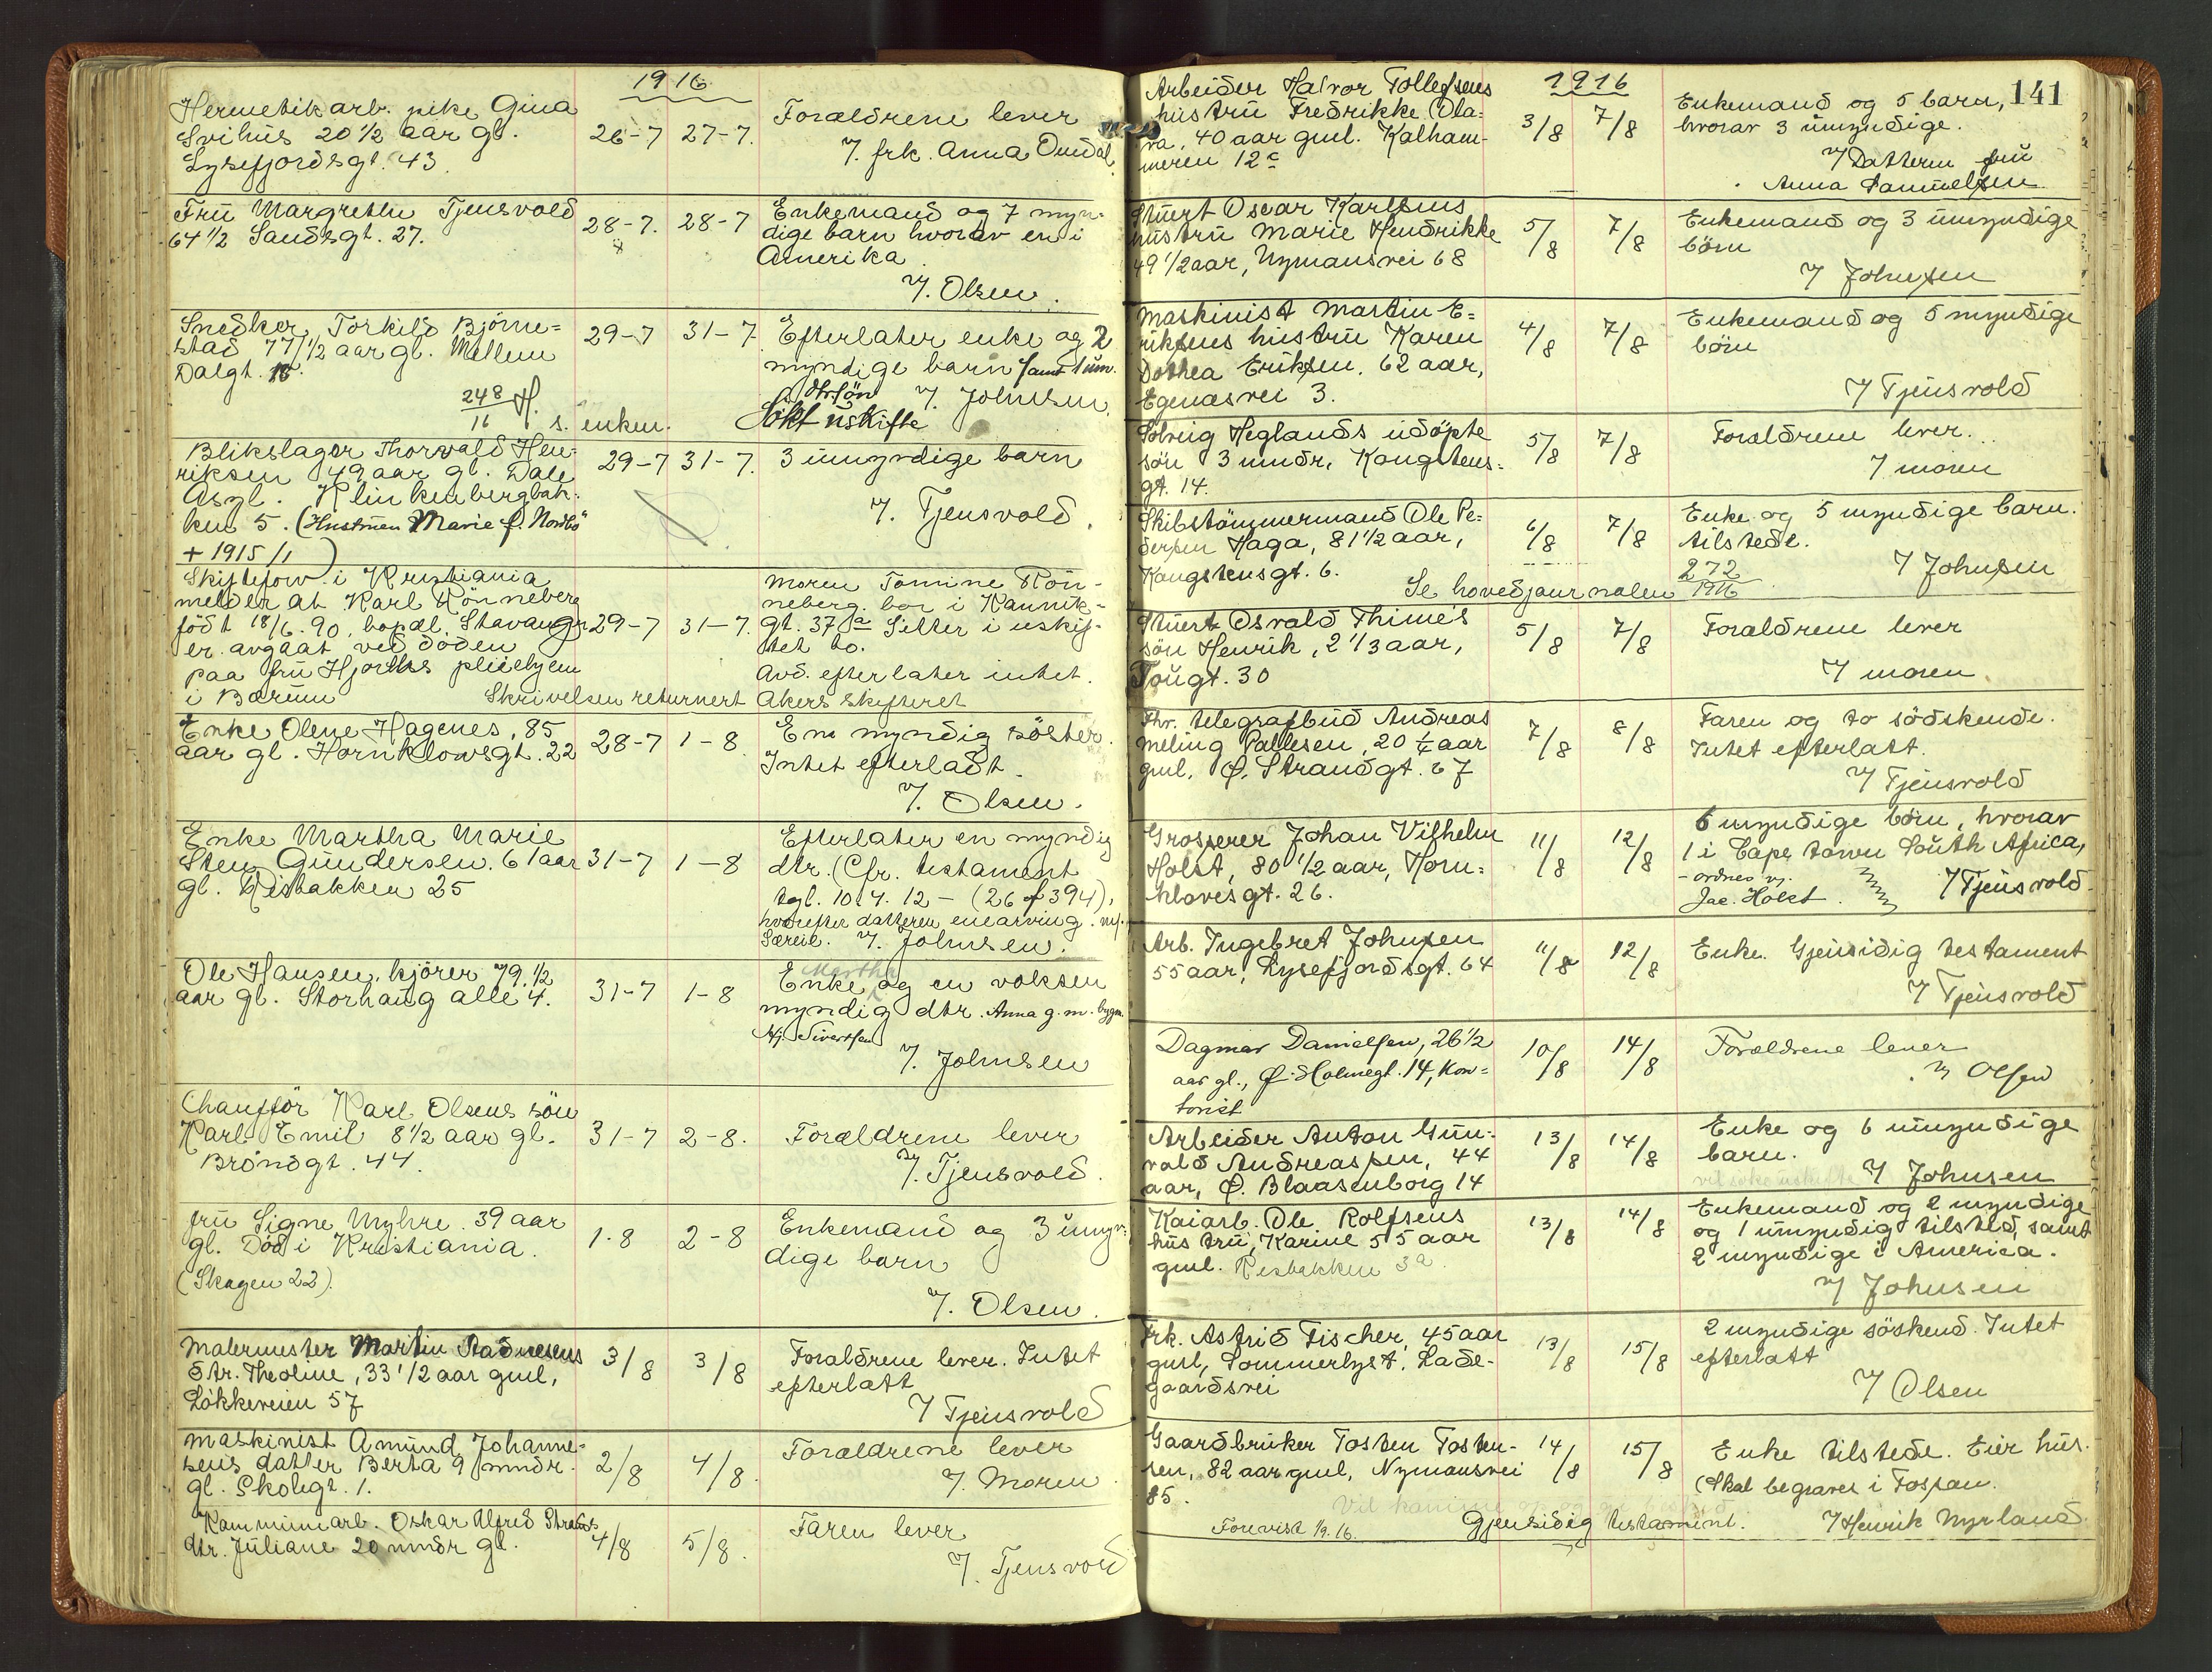 1916
Hermetikarb. pike Gina
Svihus 20 1/2 aar gl.
Lysefjordsgt. 43.
26-7 27-7.
Forældrene lever
V. frk. Anna Omdal.
Fru Margrethe Tjensvold
64 1/2 Sandsgt. 27.
28-7. 28-7
Enkemand og 7 myn-
dige barn hvorav en i
Amerika
V. Olsen.
Snedker Torkild Björne=
stad 77 1/2 aar gl. Mellem
Dalgt.
29-7 31-7
Efterlater enke og 2
myndige barn samt 1 um.
V. Johnsen.
248/16
s. enken.
Sökt uskifte
Blikslager Thorvald Hen-
riksen 49 aar gl. Dale
Asyl. Klinkenbergbak-
ken 5. (Hustruen Marie f. Nordbö
+ 1915/1)
29-7 31-7.
3 umyndige barn
V. Tjensvold.
Skifteforv. i Kristiania
melder at Karl Rönneberg
födt 18/6. 90, bopæl Stavanger
er avgaat ved döden
paa fru Hjorths pleiehjem
i Bærum
29-7 31-7.
Moren Tomine Rön-
neberg bor i Kannik-
gt. 37 a Sitter i uskif-
tet bo.
Avd. efterlater intet.
Skrivelsen returnert Akers skifteret
Enke Olene Hagenes, 85
aar gl. Hornklovsgt. 22
28-7 1-8
En myndig söster.
Intet efterladt.
V. Olsen.
Enke Martha Marie
Sten Gundersen. 61 aar
gl. Risbakken 25
31-7 1-8
Efterlater en myndig
dtr. (Cfr. testament
tgl. 10.4. 12 - (26 f 394),
hvorefter datteren enearving.
Særeie. V. Johnsen.
Ole Hansen, kjörer 79 1/2
aar gl. Storhaug alle 4.
31-7 1-8
Martha
Enke og en voksen
myndig dtr. Anna g. m. bygm.
Hj. Sivertsen
V. Johnsen
Chauffør Karl Olsens sön
Karl Emil 8 1/2 aar gl.
Bröndgt. 44.
31-7 2-8.
Forældrene lever
V. Tjensvold.
Fru Signe Myhre. 39 aar
gl. Död i Kristiania.
(Skagen 22).
1-8 2-8
Enkemand og 3 umyn-
dige barn
V. Olsen.
Malermester Martin Stadnesens
dtr. Theoline, 33 1/2 aar gml,
Lökkeveien 57
3/8 3/8
Forældrene lever. Intet
efterlatt
V Tjensvold
Maskinist Amund Johanne-
sens datter Berta 9 mndr.
gl. Skolegt. 1.
2/8 4/8.
Forældrene lever
V. Moren.
Oskar Alfred
dtr. Juliane 20 mndr gl.
4/8 5/8.
Faren lever
V. Tjensvold
1916
141
Arbeider Halvor Tollefsens
hustru Fredrikke Ola-
va, 40 aar gml. Kalham-
meren 12 c
3/8 7/8
Enkemand og 5 barn,
hvorav 3 umyndige.
V Datteren fru
Anna Samuelsen
Stuert Oscar Karlsens
hustru Marie Hendrikke
49 1/2 aar, Nymansvei 68
5/8 7/8
Enkemand og 3 umyndige
börn
V Johnsen
Maskinist Martin E=
riksens hustru Karen
Dothea Eriksen. 62 aar,
Egenæsvei 3.
4/8 7/8
Enkemand og 5 myndige
börn
V Tjensvold
Solveig Heglands udöpte
sön 3 mndr, Kongstens-
gt. 14.
5/8 7/8
Forældrene lever.
V moren
Skibstömmermand Ole Pe-
dersen Haga, 81 1/2 aar,
Kongstensgt. 6.
6/8 7/8
Enke og 5 myndige barn.
tilstede.
V Johnsen
Se hovedjournalen 272/1916
Stuert Osvald Thime's
sön Henrik, 2 1/3 aar,
Tougt. 30
5/8 7/8
Forældrene lever
V moren
Fhv. telegrafbud Andreas
Meling Pallesen, 20 1/4 aar
gml. Ø. Strandgt. 67
7/8 8/8
Faren og to södskende.
Intet efterlatt.
V Tjensvold
Grosserer Johan Vilhelm
Holst, 80 1/2 aar, Horn-
klovesgt. 26.
11/8 12/8
6 myndige börn, hvorav
1 i Cape town South Africa,
- ordnes v.
Jac. Holst.
V Tjensvold.
Arb. Ingebret Johnsen
55 aar, Lysefjordsgt. 64
11/8 12/8
Enke. Gjensidig testament
V Tjensvold
Dagmar Danielsen, 26 1/2
aar gl., Ø. Holmegt. 14, kon=
torist
10/8 14/8
Forældrene lever
V Olsen
Arbeider Anton Gun-
vald Andreassen, 44
aar, Ø. Blaasenborg 14
13/8 14/8
Enke og 6 umyndige
barn.
vil søke uskifte
V Johnsen
Kaiarb. Ole Rolfsens
hustru, Karine 55 aar
gml. Resbakken 3a.
13/8 14/8
Enkemand og 2 myndige
og 1 umyndig tilsted, samt
2 myndige i America.
V Johnsen
Frk. Astrid Fischer, 45 aar
gml, Sommerlyst, Lade-
gaardsvei
13/8 15/8
2 myndige söskend. Intet
efterlatt
V Olsen
Gaardbruker Tosten Tosten-
sen, 82 aar gml, Nymansvei
85.
14/8 15/8
Enke tilstede. Eier hus.
(Skal begraves i Fossan.
Forevist 1/9. 16. Gjensidig testament. V Henrik Nyrland